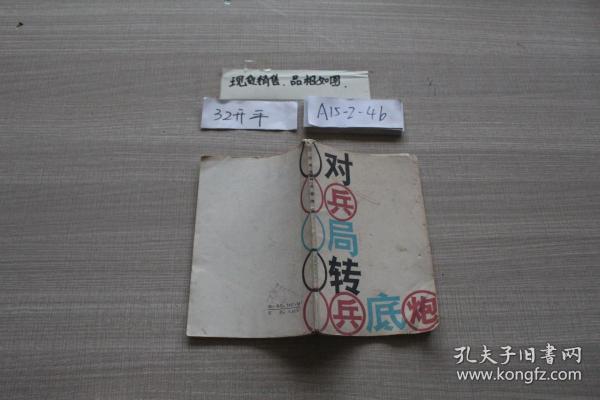 现货销售、品相如图、
32开平
A15-2-4b
对兵局转兵底炮
孔夫子旧书网
www.kongfz.com